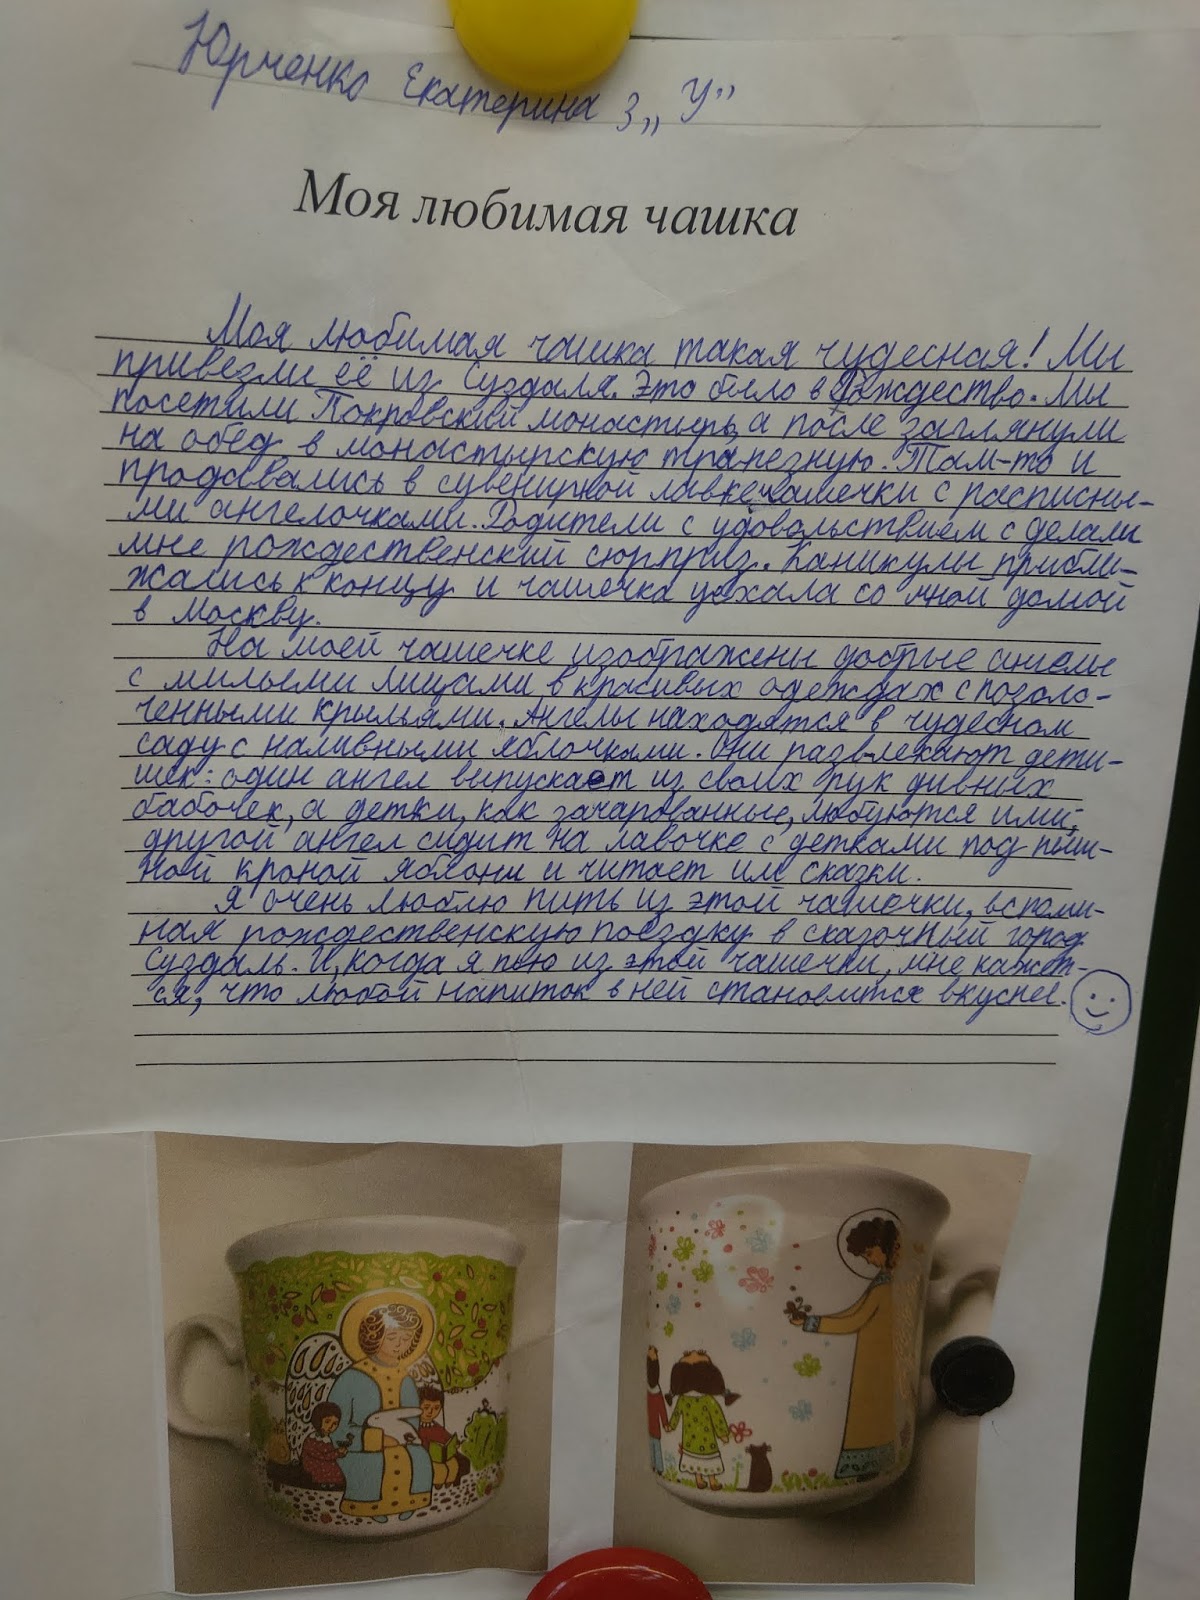 Юрченко Екатерина 3 „У”
Моя любимая чашка
Моя любимая чашка такая чудесная! Мы
привезли её из Суздаля. Это было в Рождество. Мы
посетили Покровский монастырь, а после заглянули
на обед в монастырскую трапезную. Там-то и
продавались в сувенирной лавке чашечки с расписны-
ми ангелочками. Родители с удовольствием сделали
мне рождественский сюрприз. Каникулы прибли-
жались к концу и чашечка уехала со мной домой
в Москву.
На моей чашечке изображены добрые ангелы
с милыми лицами, в красивых одеждах с позоло-
ченными крыльями. Ангелы находятся в чудесном
саду с наливными яблочками. Они развлекают дети-
шек: один ангел выпускает из своих рук дивных
бабочек, а детки, как зачарованные, любуются ими;
другой ангел сидит на лавочке с детками под пыш-
ной кроной яблони и читает им сказки.
Я очень люблю пить из этой чашечки, вспоми-
ная рождественскую поездку в сказочный город
Суздаль. И, когда я пью из этой чашечки, мне кажет-
ся, что любой напиток в ней становится вкуснее.